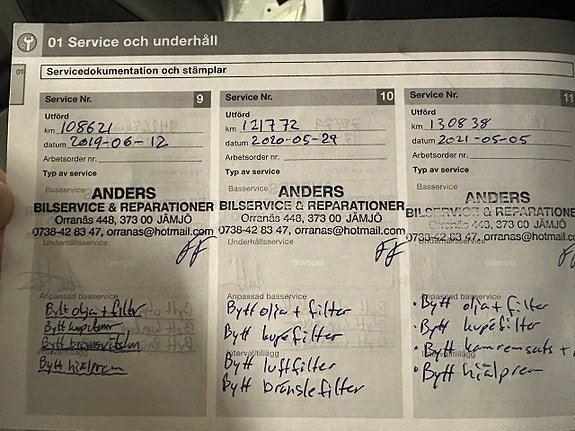 01 Service och underhåll
01
Servicedokumentation och stämplar
Service Nr. 9
Utförd
km 108621
datum 2019-06-12
Arbetsorder nr.
Typ av service
Basservice
ANDERS
BILSERVICE & REPARATIONER
Orranäs 448, 373 00 JÄMJÖ
0738-42 83 47, orranas@hotmail.com
Underhållsservice
Anpassad basservice
Bytt olja + filter
Bytt kupefilter
Bytt bromsvätska
Intervalltillägg
Bytt hjälprem
Service Nr. 10
Utförd
km 121772
datum 2020-05-29
Arbetsorder nr.
Typ av service
Basservice
ANDERS
BILSERVICE & REPARATIONER
Orranäs 448, 373 00 JÄMJÖ
0738-42 83 47, orranas@hotmail.com
Underhållsservice
Stämpel
Anpassad basservice
Bytt olja + filter
Bytt kupefilter
Intervalltillägg
Bytt luftfilter
Bytt bränslefilter
Service Nr. 11
Utförd
km 130838
datum 2021-05-05
Arbetsorder nr.
Typ av service
Basservice
ANDERS
BILSERVICE & REPARATIONE
Orranäs 448, 373 00 JÄMJÖ
0738-42 83 47, orranas@hotmail.com
Underhållsservice
Stämpel
Anpassad basservice
· Bytt olja + filter
· Bytt kupefilter
· Bytt kamremsats +
Intervalltillägg
· Bytt hjälprem